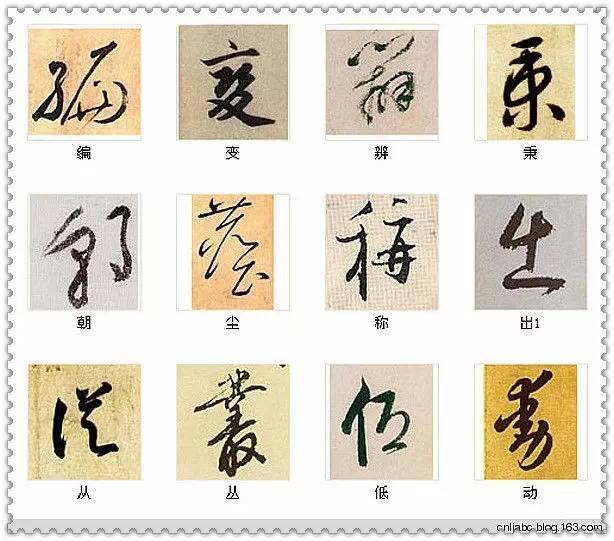 编 变 辨 秉
朝 尘 称 出1
从 丛 低 动
cnljabc.blog.163.com